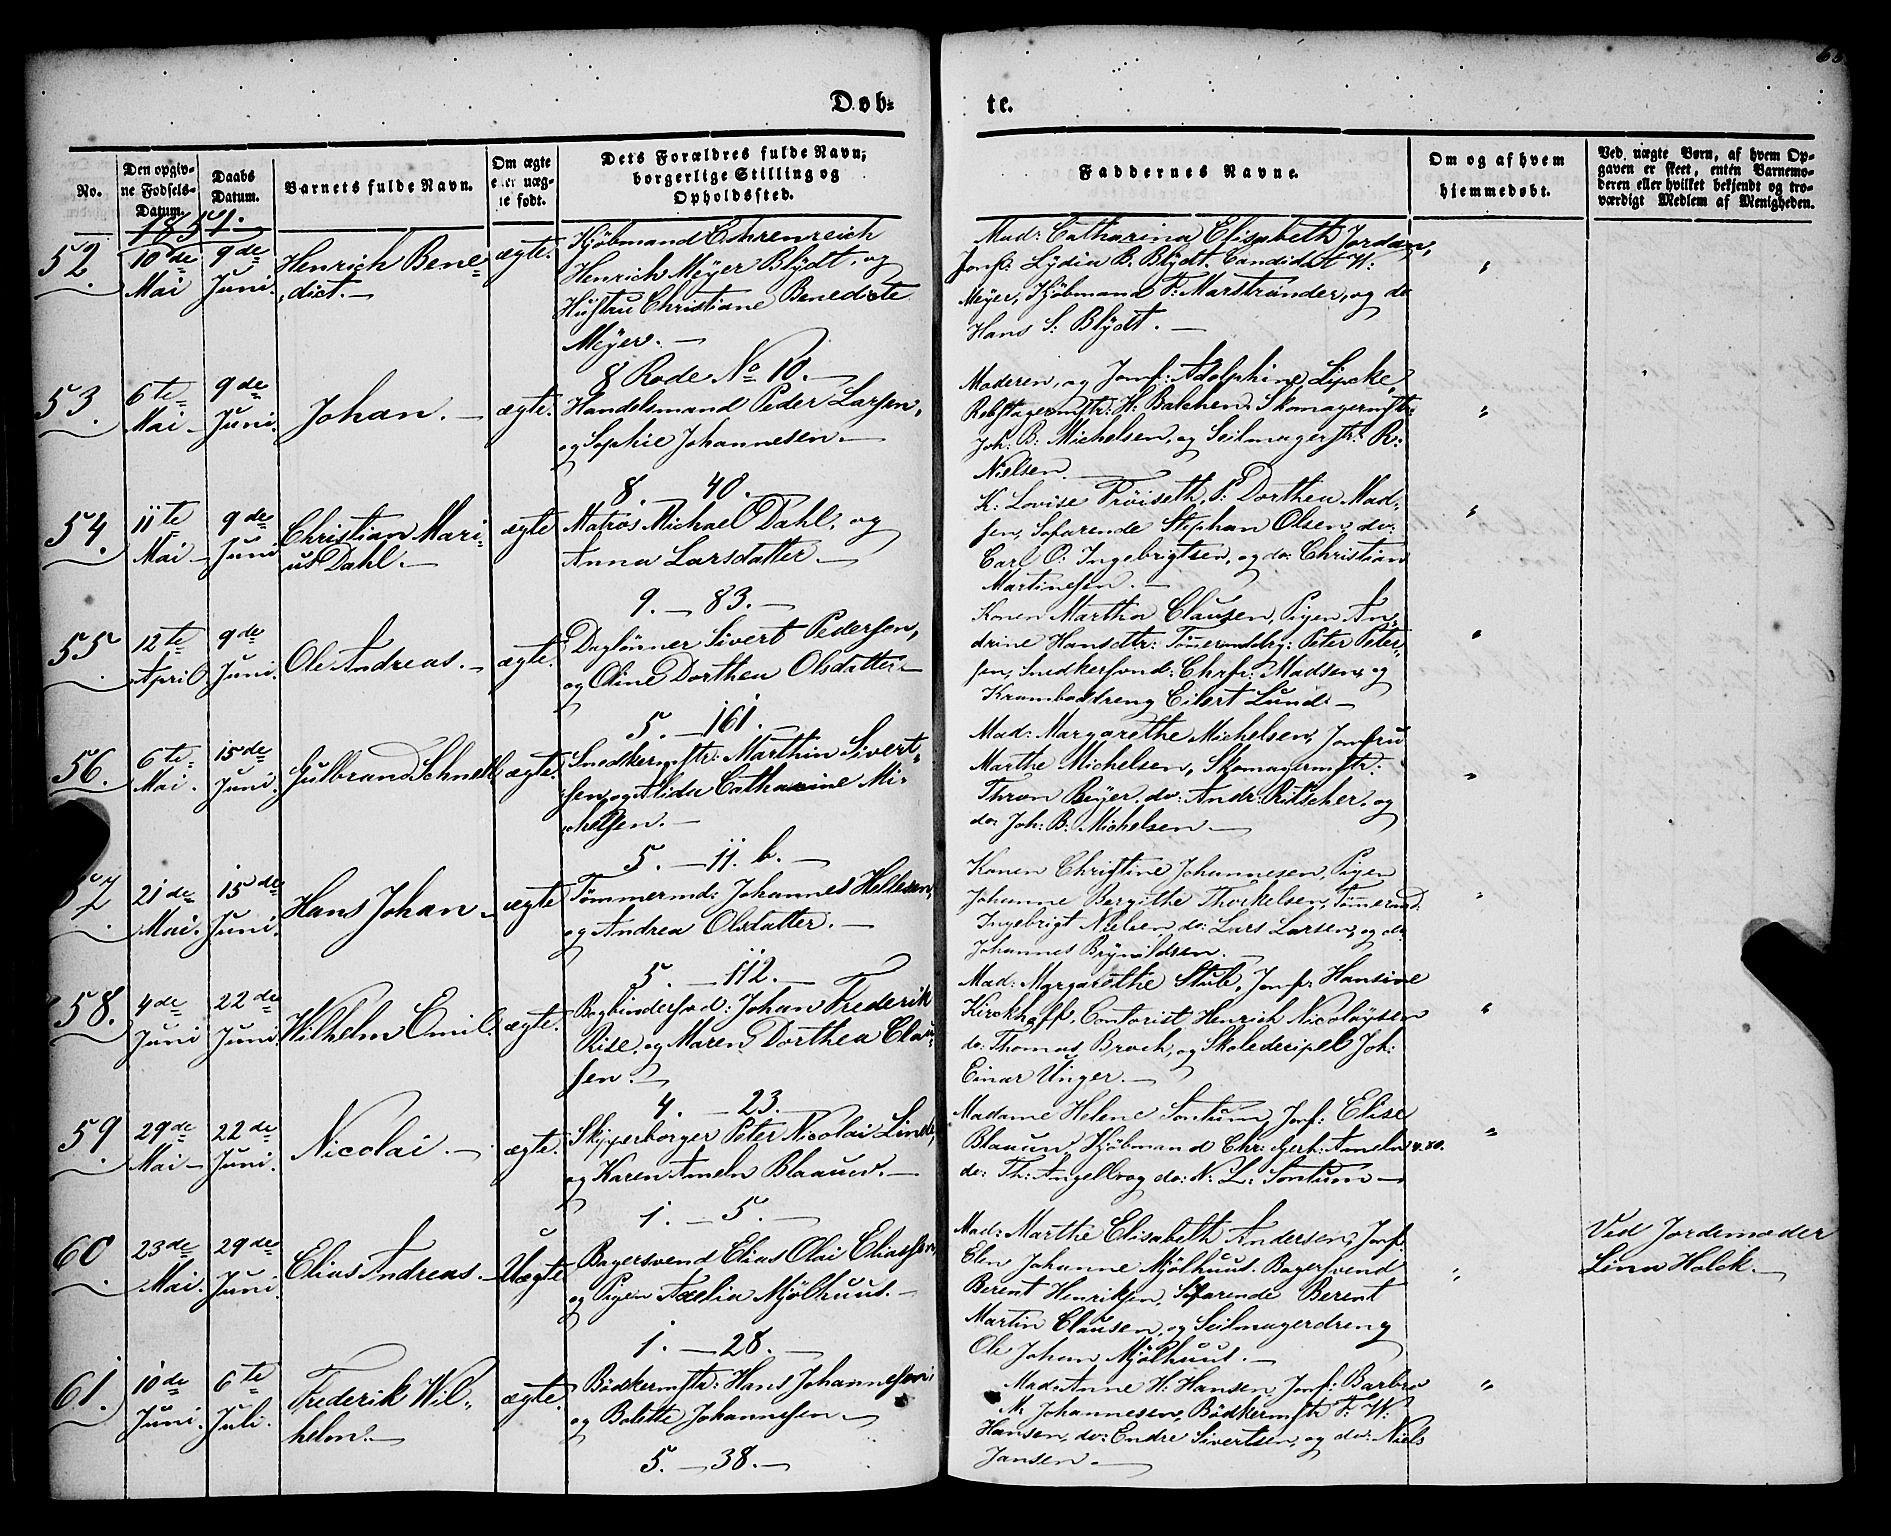 68
Døb-
te.
No.
Den opgivne Fødsels-Datum.
Daabs Datum.
Barnets fulde Navn.
Om ægte eller uægte født.
Dets Forældres fulde Navn, borgerlige Stilling og Opholdssted.
Faddernes Navne.
Om og af hvem hjemmedøbt.
Ved uægte Børn, af hvem Op-
gaven er skeet, enten Barnemo-
deren eller hvilket bekjendt og tro-
værdigt Medlem af Menigheden.
1851.
52.
10de Mai
9de Juni.
Henrich Bene-
dict.
ægte.
Kjøbmand Ehrenreich
Henrich Meÿer Blÿdt, og
Hustru Christiane Benedicte
Meÿer.
8 Rode No 10.
Mad: Catharina Elisabeth Jordan,
Jomf: Lÿdia B. Blÿdt, Candidat W:
Meÿer, Kjöbmand F: Marstrander, og do
Hans S: Blÿdt.
"
53.
6te Mai
9de Juni.
Johan.
ægte.
Handelsmand Peder Larsen,
og Sophie Johannesen
8. 40.
Moderen, og Jomf: Adolphine Lÿcke,
Rebslagermstr: H: Balchen, Skomagermstr:
Joh: B: Michelsen, og Seilmagerstr: R:
Nielsen
"
54.
11te Mai
9de Juni
Christian Mari-
us Dahl.
ægte
Matros Michael Dahl, og
Anna Larsdatter
9. 83.
K: Lovise Pröiseth, P: Dorthea Mad-
sen, Söfarende Stephan Olsen, do:
Carl O: Ingebrigtsen, og do: Christian
Martinesen.
"
55
12te April
9de Juni.
Ole Andreas.
ægte.
Daglönner Sivert Pedersen,
og Oline Dorthea Olsdatter
5. 161.
Konen Martha Clausen, Pigen An-
drine Hansdtr: Tömermdsdrg: Peter Peter-
sen, Snedkersvend: Chrst: Madsen, og
Krambodreng Eilert Lund
"
56.
6te Mai.
15de Juni.
Gulbrand Schnell
ægte.
Snedkermstr: Marthin Sivert-
sen, og Alida Catharine Mi-
chelsen.
5. 11. b.
Mad: Margarethe Michelsen, Jomfru
Marthe Michelsen, Skomagermstr:
Thron Beÿer, do: Andr: Ritscher, og
do: Joh: B: Michelsen
"
57
21de Mai.
15de Juni.
Hans Johan
ægte
Tömmermd: Johannes Hellesen,
og Andrea Olsdatter.
5. 112.
Konen Christine Johannesen, Pigen
Johanne Bergithe Thorkelsen, Tömermd:
Ingebrigt Nielsen, do: Lars Larsen, og do
Johannes Brÿnildsen.
"
58.
4de Juni
22de Juni.
Wilhelm Emil
ægte.
Bogbindersvd: Johan Frederik
Rise, og Maren Dorthea Clau-
sen.
4. 23.
Mad: Margarethe Stub, Jomf: Hansine
Kirckhoff, Contorist Henrich Nicolaÿsen
do: Thomas Broch, og Skolediscipel Joh:
Einar Unger.
"
59
29de Mai
22de Juni.
Nicolai.
ægte.
Skipperborger Peter Nicolai Linde,
og Karen Ameln Blaauw.
1. 5.
Madame Helene Sontum, Jomf: Elise
Blaauw, Kjöbmand Chr: Gert: Ameln
do: Th: Angell og do: N: L: Sontum
"
60
23de Mai.
29de Juni.
Elias Andreas.
Uægte
Bagersvend Elias Olai Eliassen,
og Pigen Axelia Mjölhuus.
1. 28.
Mad: Marthe Elisabeth Andersen, Jomf:
Elen Johanne Mjölhuus. Bagersvend
Berent Henriksen, Söfarende Berent
Martin Clausen, og Seilmagerdreng
Ole Johan Mjölhuus.
"
Ved Jordemoder
Lina Holck.
61.
10de Juni.
6te Juli.
Frederik Wil-
helm.
ægte.
Bödkermstr: Hans Johannesen
og Bolette Johannesen
5. 38.
Mad: Anne H: Hansen, Jomf: Barbro
M: Johannesen, Bödkermstr F: W:
Hansen, do: Endre Sivertsen, og do: Niels
Jansen.
"